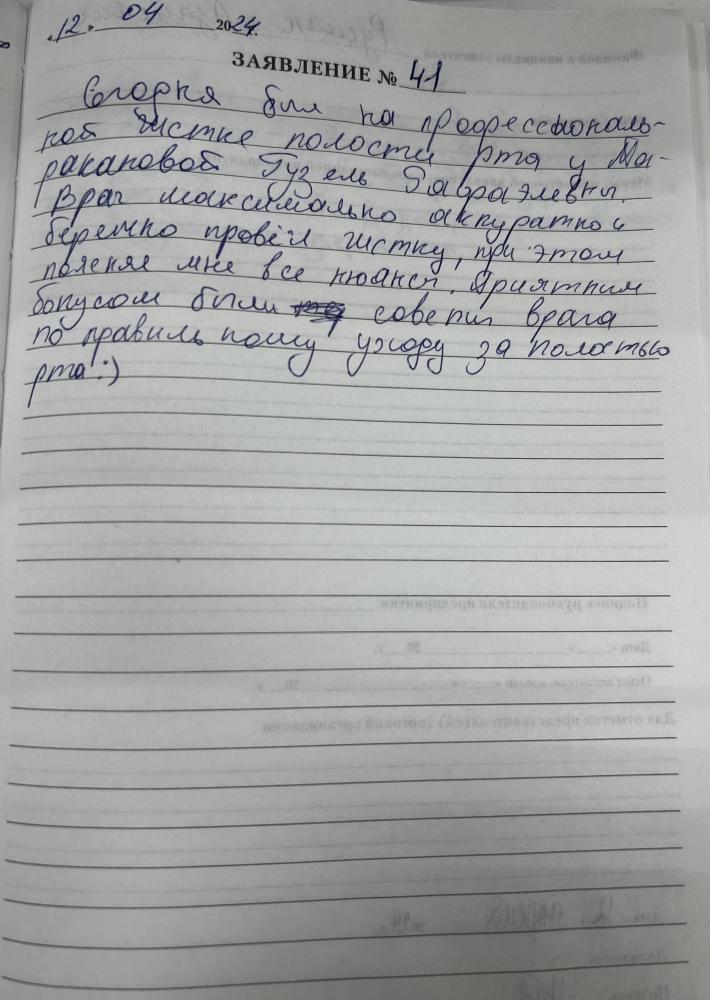 «12» 04 2024г.
ЗАЯВЛЕНИЕ № 41
Сегодня был на профессиональ-
ной чистке полости рта у Ма-
ракановой Гузель Рафаэлевны.
Врач максимально аккуратно и
бережно провёл чистку, при этом
поясняя мне все нюансы. Приятным
бонусом были советы врача
по правильному уходу за полостью
рта :)